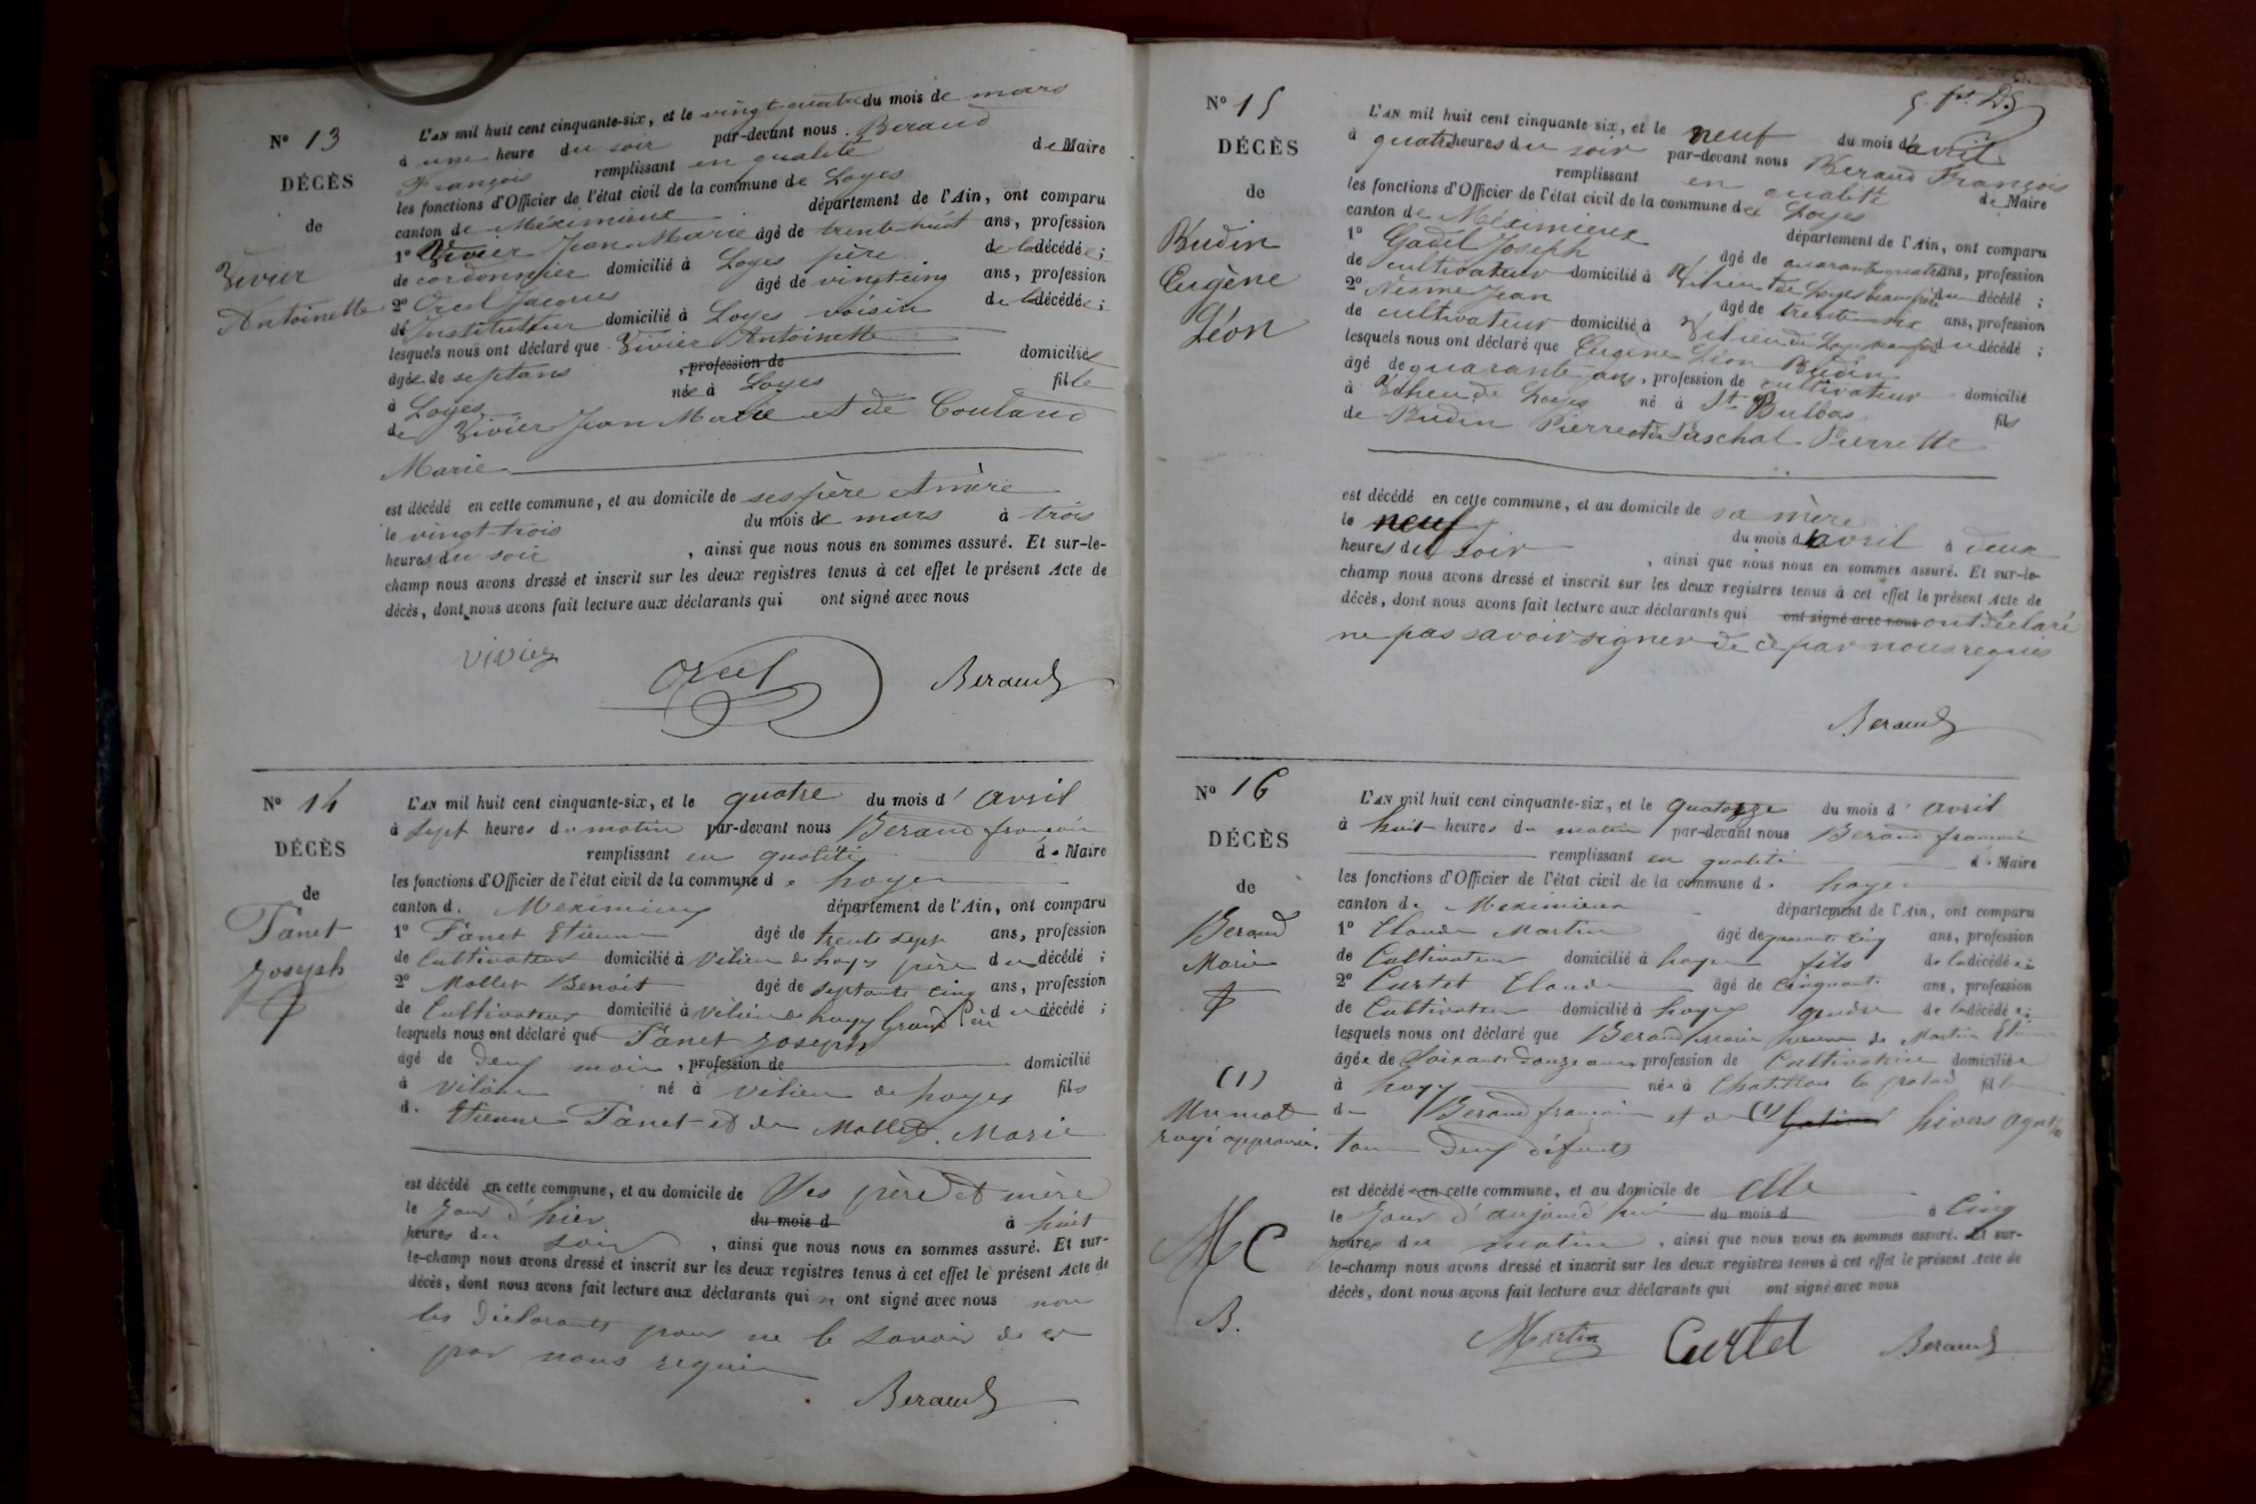 N° 13
DÉCÈS
de
Vivier
Antoinette
L'AN mil huit cent cinquante-six, et le vingt quatre du mois de mars
à une heure du soir par-devant nous Beraud
François remplissant en qualité de Maire
les fonctions d'Officier de l'état civil de la commune de Loyes
canton de Méximieux département de l'Ain, ont comparu
1° Vivier Jean Marie âgé de trente huit ans, profession
de cordonnier domicilié à Loyes père de la décédée ;
2° Orcel Jacques âgé de vingt cinq ans, profession
de Instituteur domicilié à Loyes voisin de la décédée ;
lesquels nous ont déclaré que Vivier Antoinette
âgée de sept ans , profession de domiciliée
à Loyes née à Loyes fille
de Vivier Jean Marie et de Coutaud
Marie
est décédé en cette commune, et au domicile de ses père et mère
le vingt-trois du mois de mars à trois
heures du soir , ainsi que nous nous en sommes assuré. Et sur-le-
champ nous avons dressé et inscrit sur les deux registres tenus à cet effet le présent Acte de
décès, dont nous avons fait lecture aux déclarants qui ont signé avec nous
Vivier Orcel Beraud
N° 14
DÉCÈS
de
Panet
Joseph
L'AN mil huit cent cinquante-six, et le quatre du mois d' avril
à sept heures du matin par-devant nous Beraud françois
remplissant en qualité de Maire
les fonctions d'Officier de l'état civil de la commune de Loyes
canton de Meximieux département de l'Ain, ont comparu
1° Panet Etienne âgé de trente sept ans, profession
de Cultivateur domicilié à Vilieu de Loyes père du décédé ;
2° Mollet Benoit âgé de septante cinq ans, profession
de Cultivateur domicilié à Vilieu de Loyes Grand Père du décédé ;
lesquels nous ont déclaré que Panet Joseph
âgé de deux mois , profession de domicilié
à Vilieu né à Vilieu de Loyes fils
de Etienne Panet et de Mollet Marie
est décédé en cette commune, et au domicile de Ses père et mère
le Jour d'hier du mois d à huit
heures du soir , ainsi que nous nous en sommes assuré. Et sur-
le-champ nous avons dressé et inscrit sur les deux registres tenus à cet effet le présent Acte de
décès, dont nous avons fait lecture aux déclarants qui ont signé avec nous non
les déclarants pour ne le savoir de ce
par nous requis
Beraud
N° 15
DÉCÈS
de
Budin
Eugène
Léon
L'AN mil huit cent cinquante six, et le neuf du mois d'avril
à quatre heures du soir par-devant nous Beraud François
remplissant en qualité de Maire
les fonctions d'Officier de l'état civil de la commune de Loyes
canton de Méximieux département de l'Ain, ont comparu
1° Joseph âgé de quarante quatre ans, profession
de cultivateur domicilié à Vilieu de Loyes beau frère du décédé ;
2° Nesme Jean âgé de trente six ans, profession
de cultivateur domicilié à Vilieu de Loyes du décédé ;
lesquels nous ont déclaré que Eugène Léon Budin
âgé de quarante ans, profession de cultivateur domicilié
à Vilieu de Loyes né à St Bulbas fils
de Budin Pierre et de Paschal Pierrette
est décédé en cette commune, et au domicile de sa mère
le neuf du mois d'avril à deux
heures du soir , ainsi que nous nous en sommes assuré. Et sur-le-
champ nous avons dressé et inscrit sur les deux registres tenus à cet effet le présent Acte de
décès, dont nous avons fait lecture aux déclarants qui ont signé avec nous ont déclaré
ne pas savoir signer de ce par nous requis
Beraud
N° 16
DÉCÈS
de
Beraud
Marie
(1)
Un mot
rayé approuvé.
M C
B.
L'AN mil huit cent cinquante-six, et le quatorze du mois d' avril
à huit heures du matin par-devant nous Beraud françois
remplissant en qualité de Maire
les fonctions d'Officier de l'état civil de la commune de Loyes
canton de Meximieux département de l'Ain, ont comparu
1° Claude Martin âgé de quarante cinq ans, profession
de Cultivateur domicilié à Loyes fils de la décédée ;
2° Curtet Claude âgé de cinquante ans, profession
de Cultivateur domicilié à Loyes gendre de la décédée ;
lesquels nous ont déclaré que Beraud Marie veuve de Martin
âgée de Soixante douze ans profession de Cultivatrice domiciliée
à Loyes née à Chatillon la palud fille
de Beraud françois et de (1) hivers
tous deux défunts
est décédé en cette commune, et au domicile de Elle
le Jour d'aujourd'hui du mois d à Cinq
heures du matin , ainsi que nous nous en sommes assuré. Et sur-
le-champ nous avons dressé et inscrit sur les deux registres tenus à cet effet le présent Acte de
décès, dont nous avons fait lecture aux déclarants qui ont signé avec nous
Martin Curtet Beraud